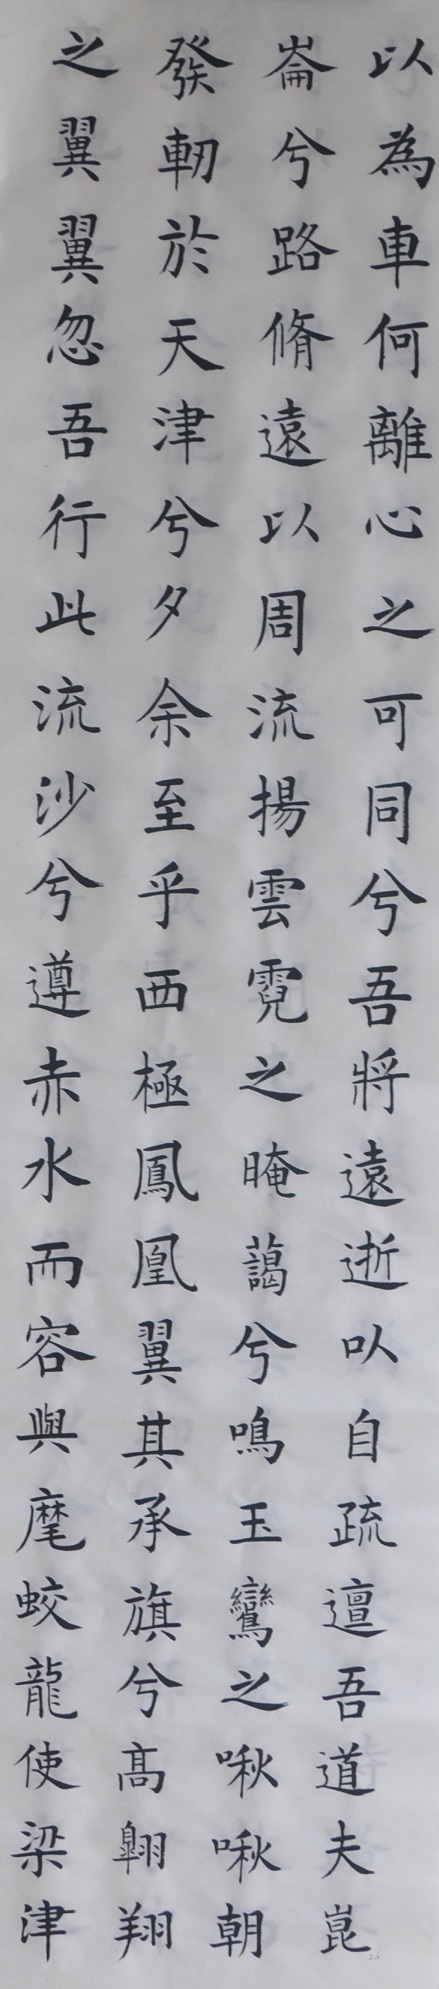 以為車何離心之可同兮吾將遠逝以自疏邅吾道夫崑
崙兮路脩遠以周流揚雲霓之晻藹兮鳴玉鸞之啾啾朝
發軔於天津兮夕余至乎西極鳳凰翼其承旂兮高翺翔
之翼翼忽吾行此流沙兮遵赤水而容與麾蛟龍使梁津